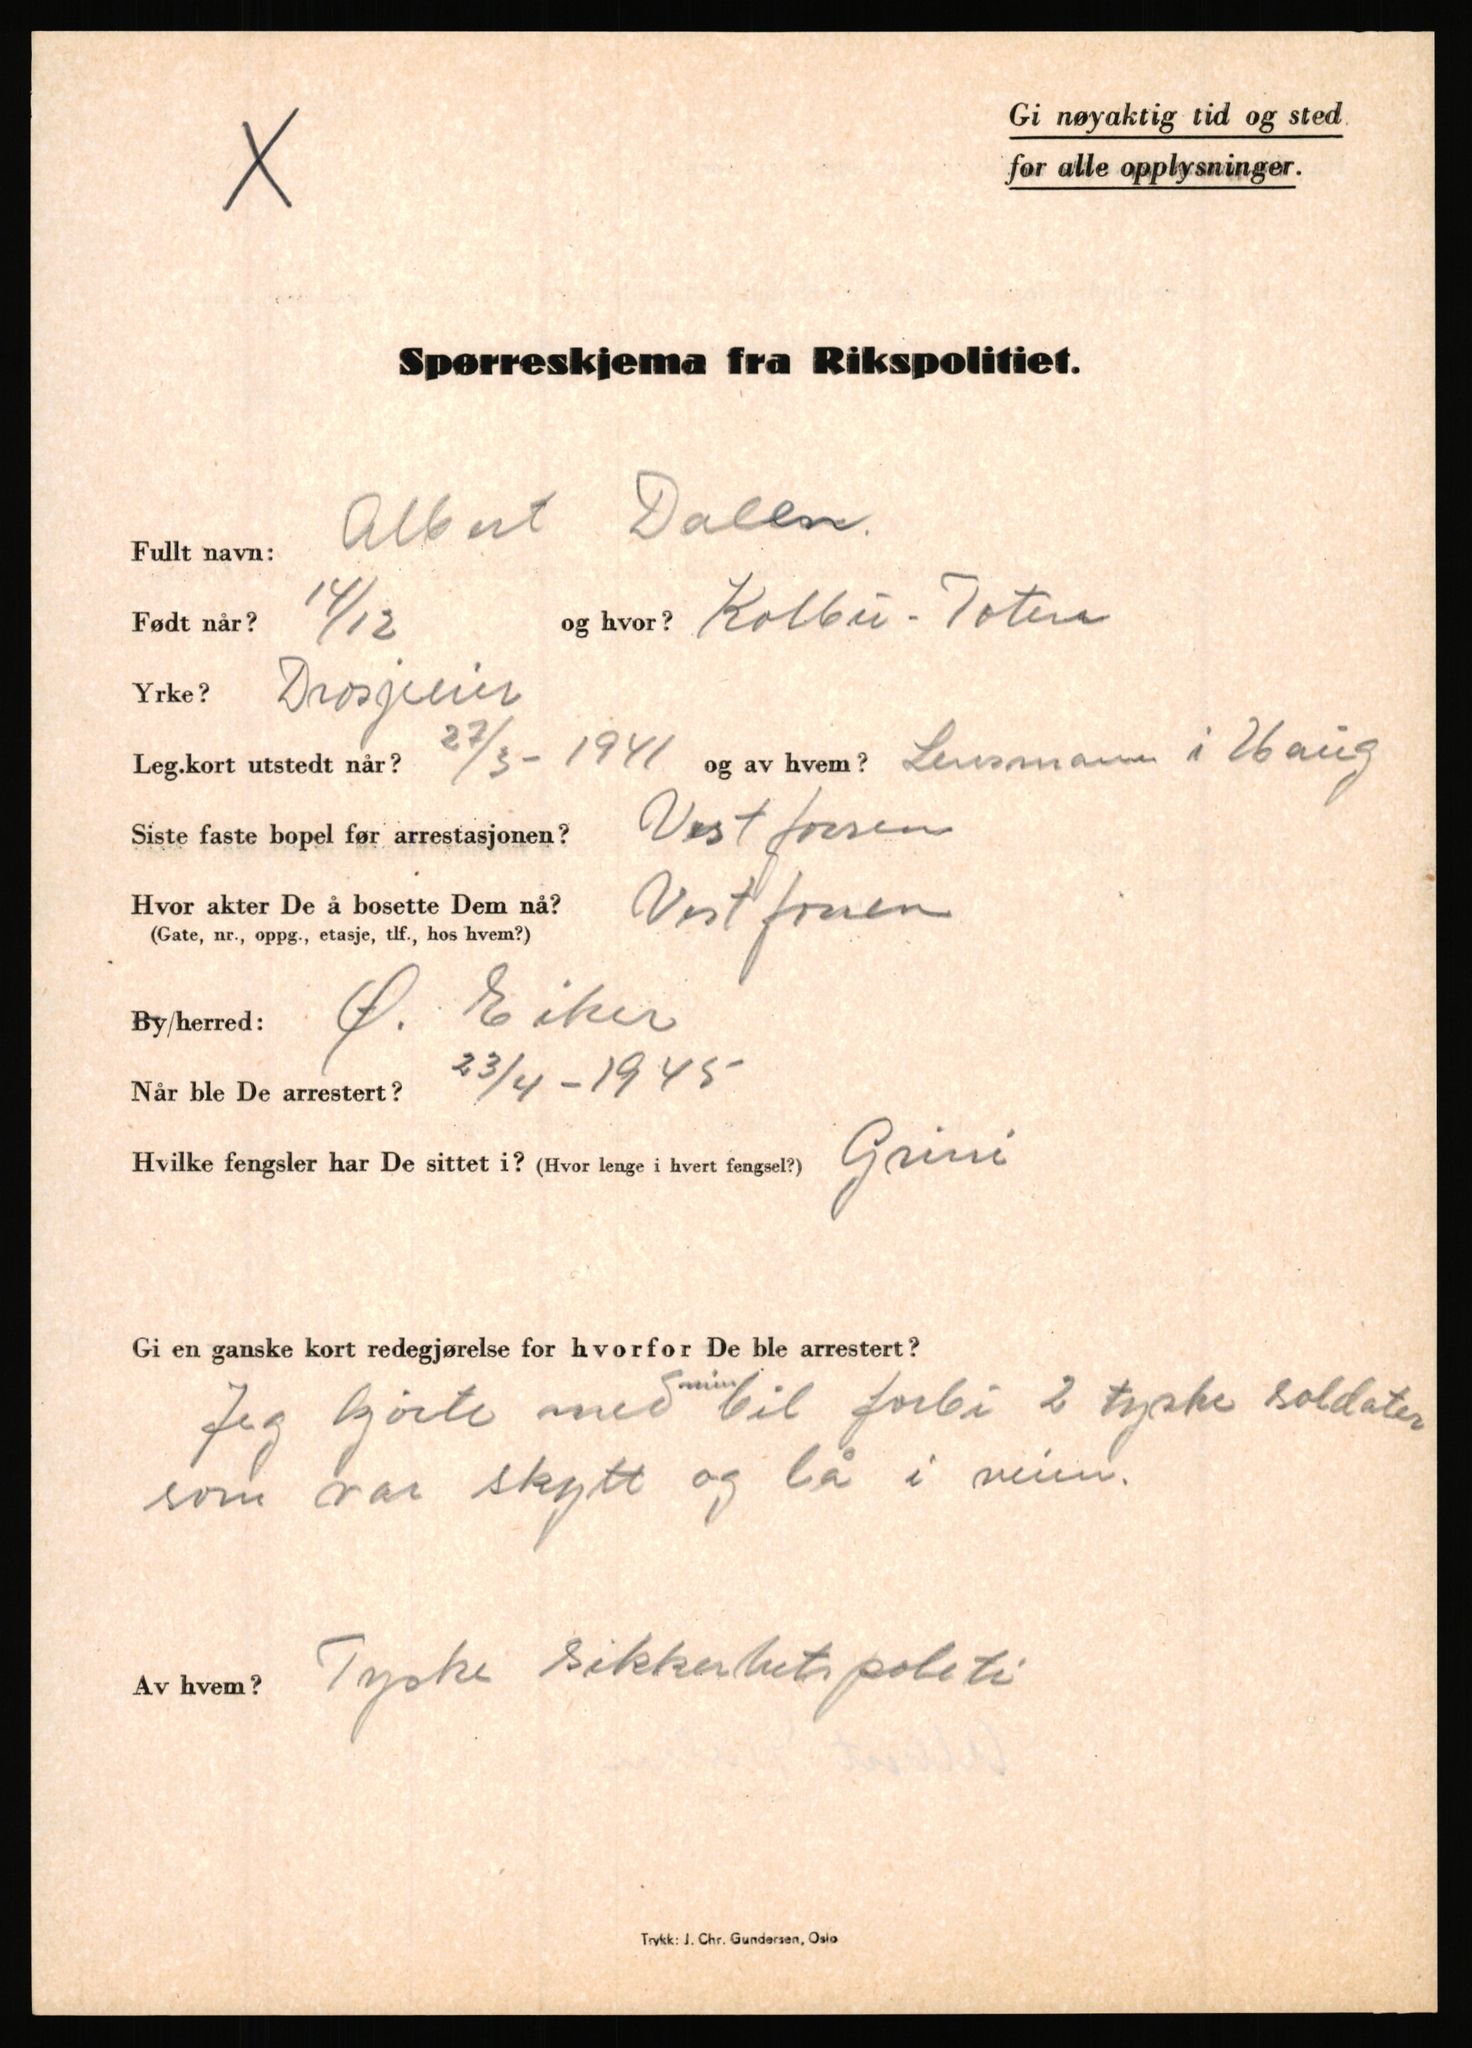 X
Gi nøyaktig tid og sted
for alle opplysninger.
Spørreskjema fra Rikspolitiet.
Fullt navn: Albert Dalen.
Født når? 14/12 og hvor? Kolbu - Toten
Yrke? Drosjeeier
Leg.kort utstedt når? 27/3 - 1941 og av hvem? Lensmann i Haug
Siste faste bopel før arrestasjonen? Vestfossen
Hvor akter De å bosette Dem nå? Vestfossen
(Gate, nr., oppg., etasje, tlf., hos hvem?)
By/herred: Ø. Eiker
Når ble De arrestert? 23/4 - 1945
Hvilke fengsler har De sittet i? (Hvor lenge i hvert fengsel?) Grini
Gi en ganske kort redegjørelse for hvorfor De ble arrestert?
Jeg kjørte med min bil forbi 2 tyske soldater
som var skytt og lå i veien.
Av hvem? Tyske sikkerhetspoleti
Trykk: J. Chr. Gundersen, Oslo